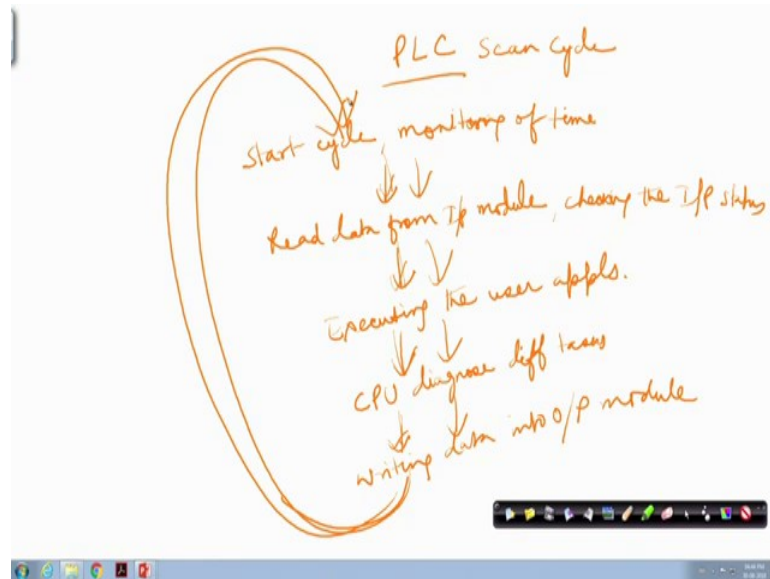 PLC scan cycle
Start cycle, monitoring of time
Read data from I/p module, checking the I/P status
Executing the user appls.
CPU diagnose diff tasks
Writing data into O/P module